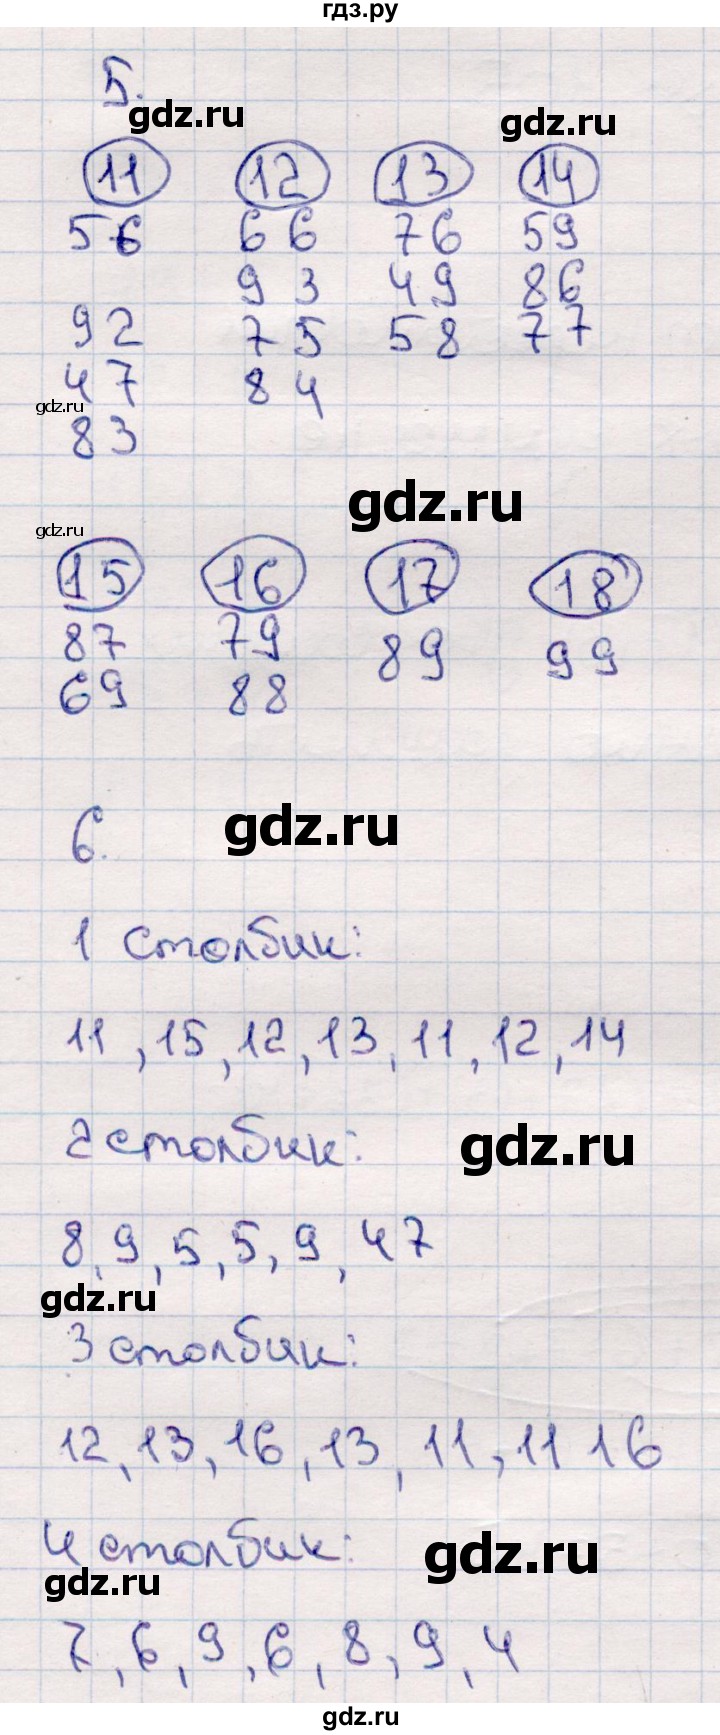 гдз.ру
5.
gdz.ru
gdz.ru
11 12 13 14
56 66 76 59
93 49 86
92 75 58 77
47 84
gdz.ru
83
gdz.ru
gdz.ru
15 16 17 18
87 79 89 99
69 88
6.
gdz.ru
1 столбик:
11, 15, 12, 13, 11, 12, 14
2 столбик:
gdz.ru
8, 9, 5, 5, 9, 47
gdz.ru
3 столбик:
12, 13, 16, 13, 11, 11 16
4 столбик:
gdz.ru
gdz.ru
7, 6, 9, 6, 8, 9, 4
gdz.ru